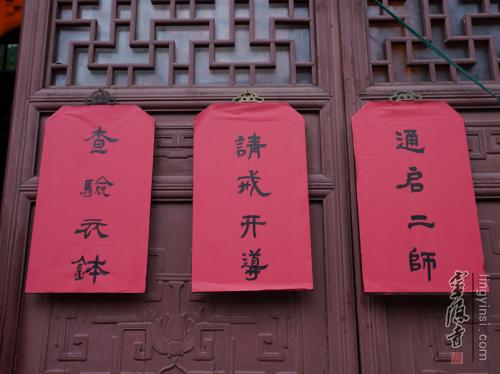 通启二师
請戒开導
查驗衣鉢
靈隱寺
lingyinsi.com